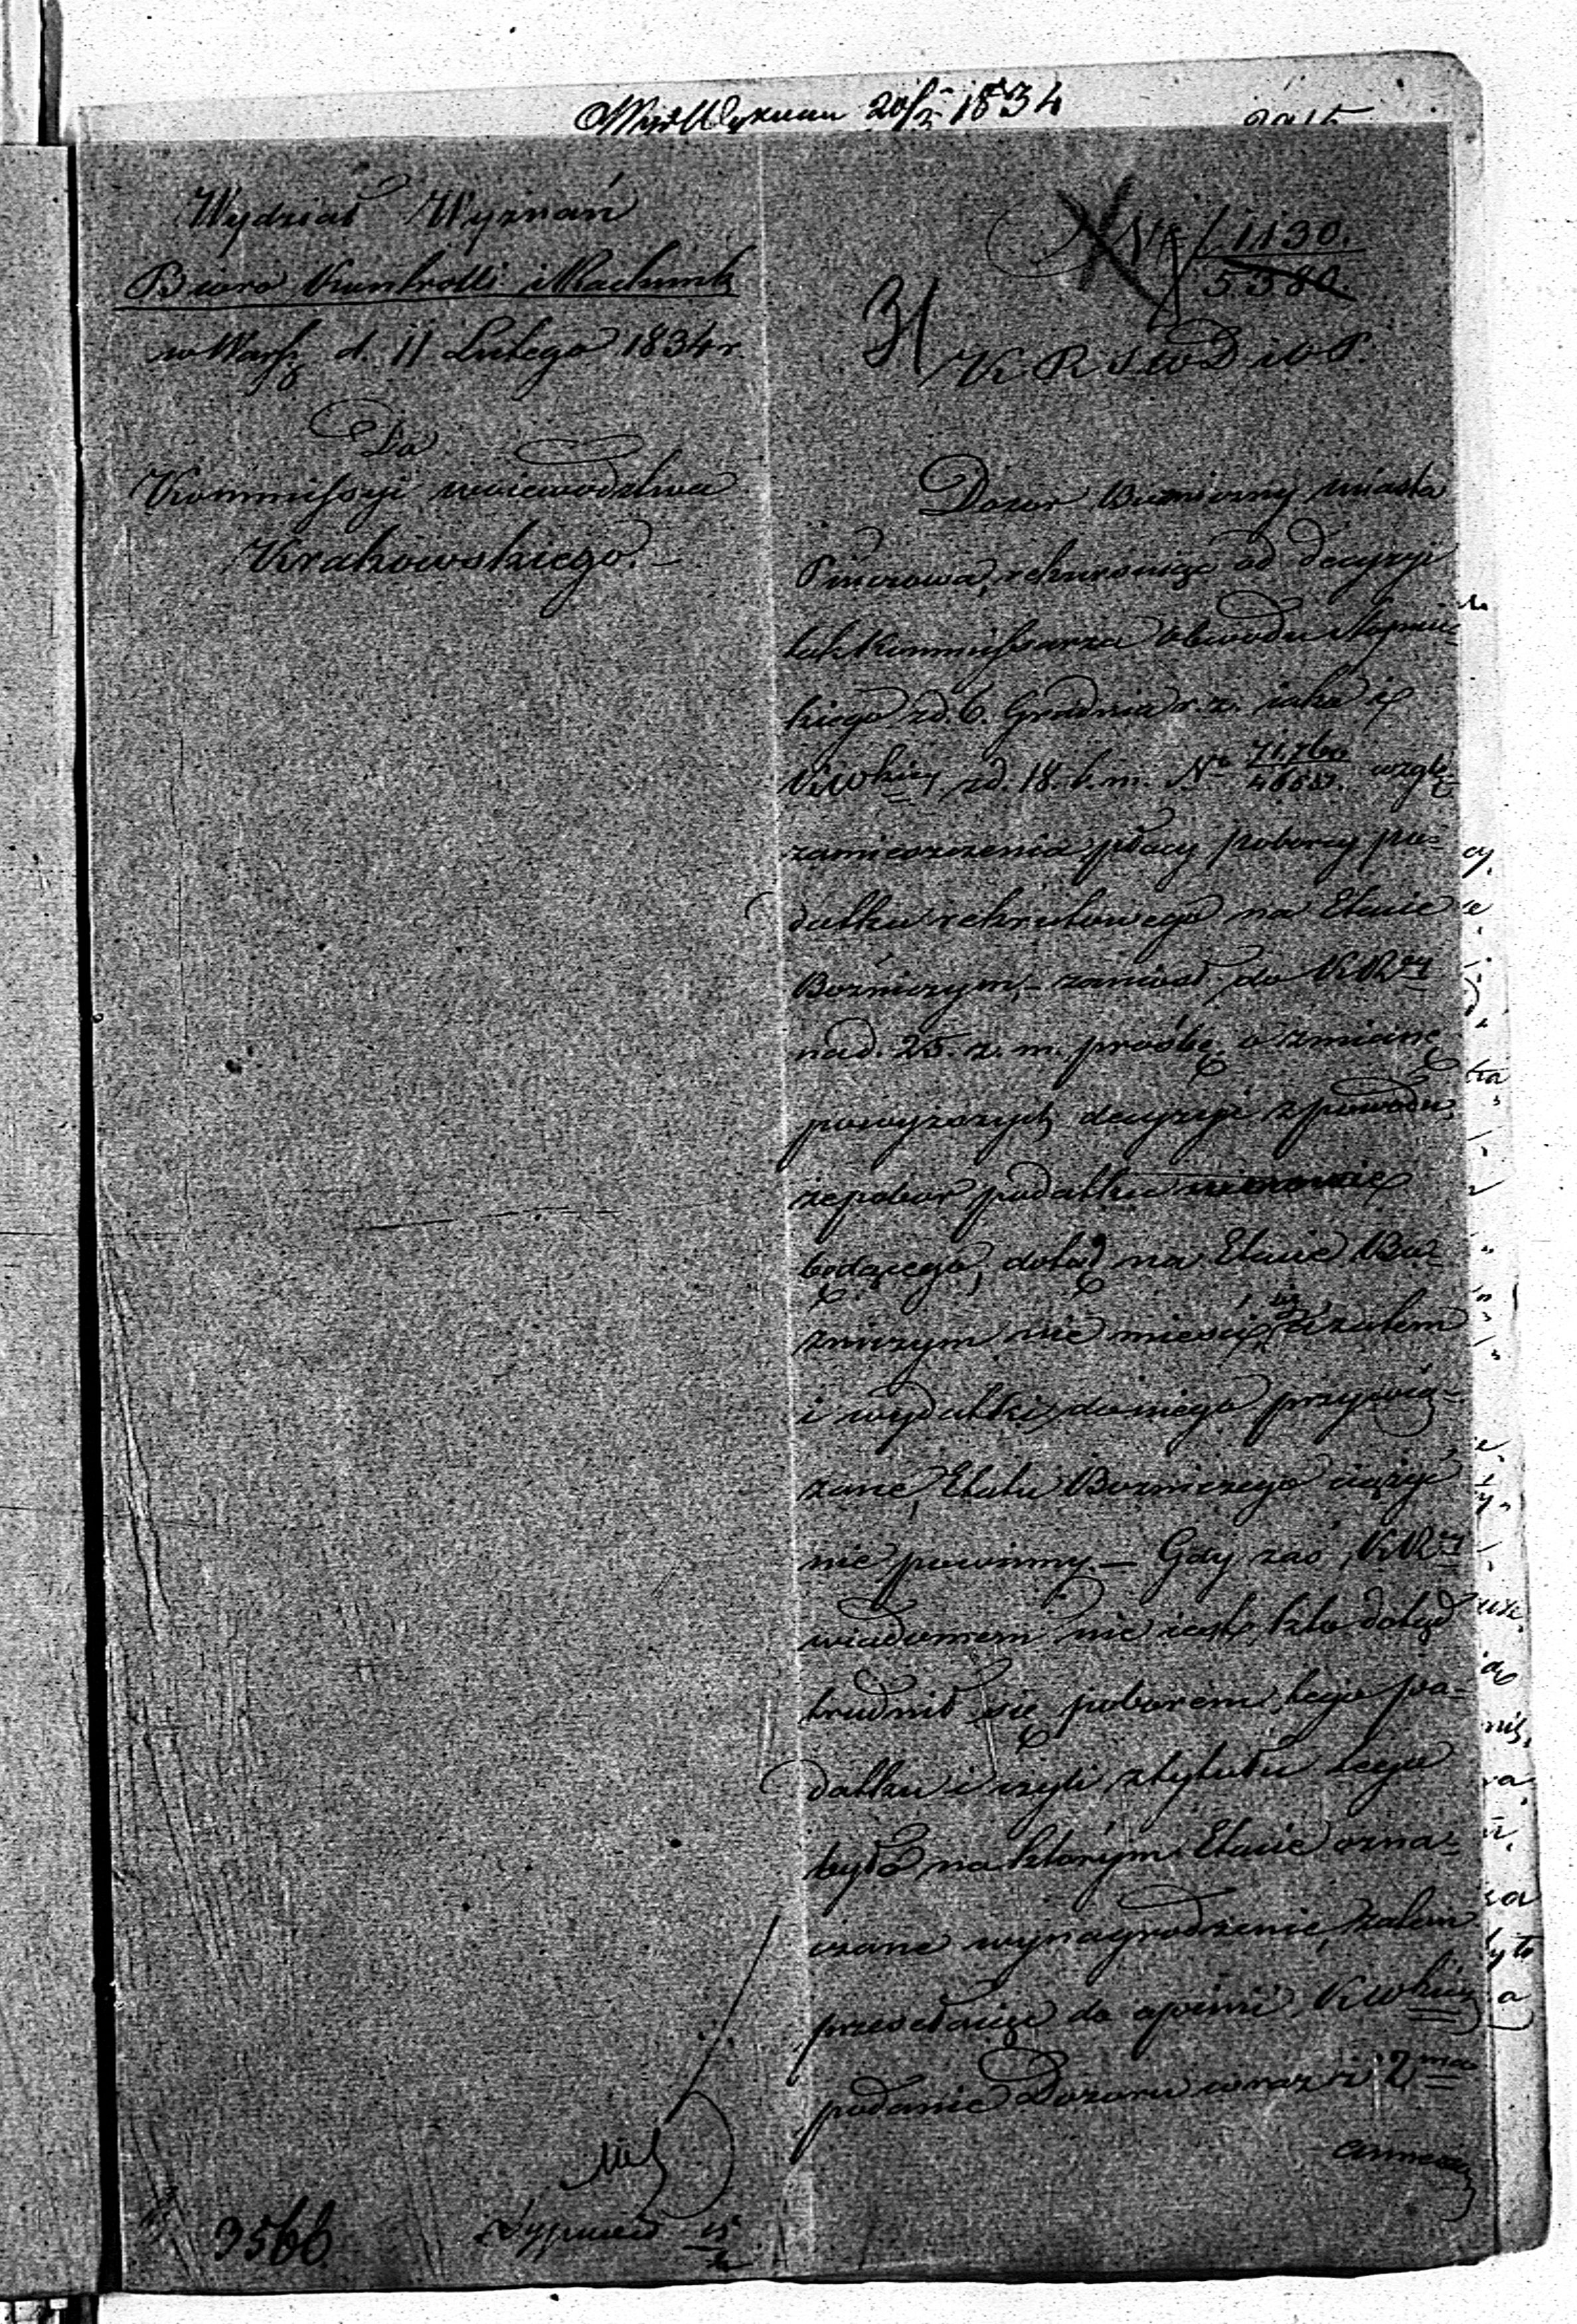 20/2 1834
2915
Wydział Wyznań
Biuro Kontrolli i Rachunk
w Warsz d. 11 Lutego 1834 r.
Do
Kommissyi woiewodztwa
Krakowskiego. –
No 1130.
5380.
31
K R S W D i O P.
Dozor Bużniczny miasta
Pinczowa, rekursuiąc od decyzyi
tak Kommissarza Obwodu Stopnic-
kiego z d. 6. Grudnia r. z. iako i
KWkiey z d. 18. t. m. No 71,760 wzglę-
zamieszczenia płacy poborcy po-
datku rekrutowego na Etacie
Bożniczym, – zaniosł do KRey
na d. 25. z. m. prośbę o zmianę
powyższych decyzyi z powodu
że pobor podatku
będącego, dotąd na Etacie Boż-
niczym nie mieści się, a zatem
i wydatki do niego przywią-
zane, Etatu Bozniczego ciążyć
nie powinny. – Gdy zaś KRey
wiadomem nie iest, kto dotąd
trudnił się poborem tego po-
datku i czyli z tytułu tego
było na którym Etacie ozna-
czone wynagrodzenie, zatem
przesełaiąc do opinii KWkiey
podanie Dozoru wraz z 2ma
annexami
3566